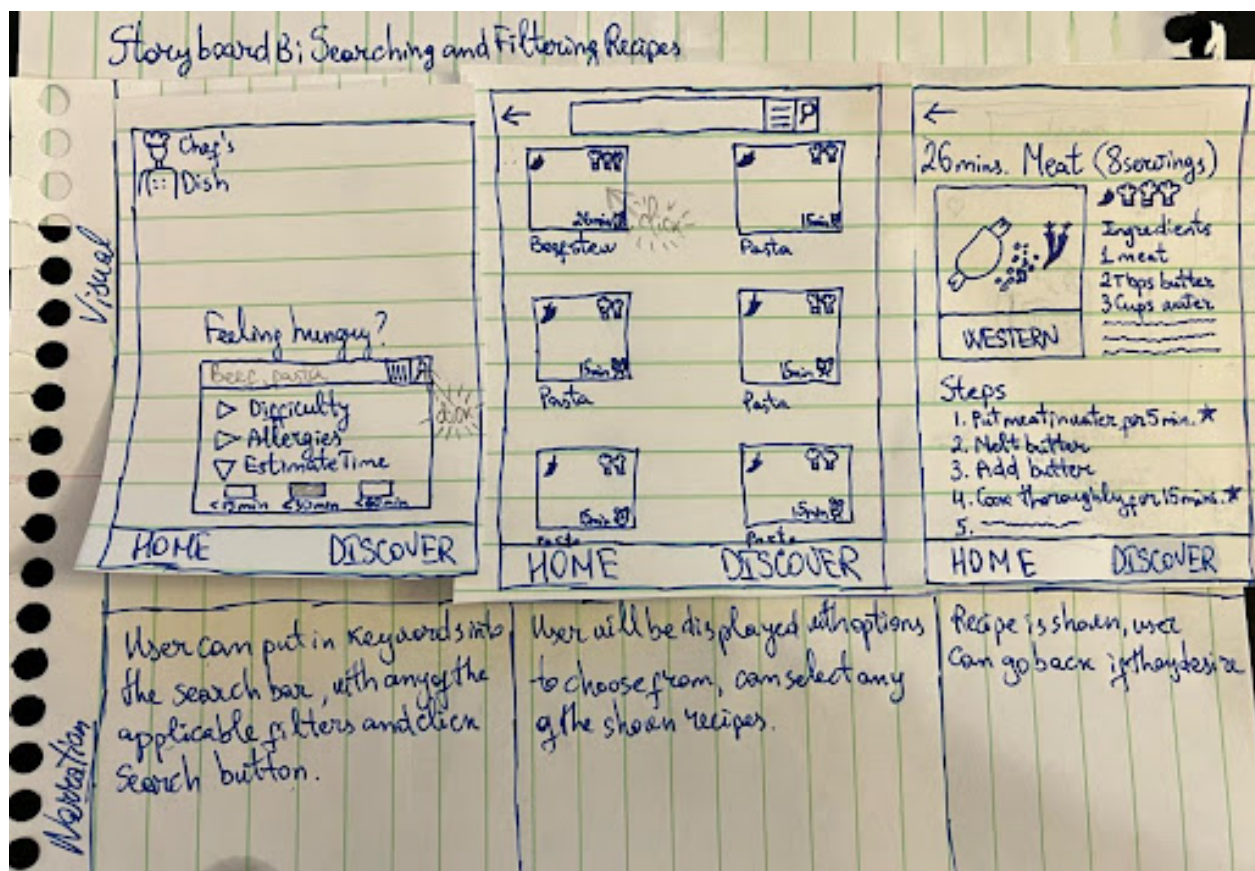 Storyboard B: Searching and Filtering Recipes
Visual
Chef's
Dish
Feeling hungry?
Beef, pasta
click
Difficulty
Allergies
Estimate Time
<15min <30min <60min
HOME DISCOVER
26min
click
15min
Beef stew
Pasta
15min
15min
Pasta
Pasta
15min
15min
Pasta
Pasta
HOME DISCOVER
26mins. Meat (8servings)
Ingredients
1 meat
2 Tbps butter
3 Cups water
WESTERN
Steps
1. Put meat in water for 5 min.*
2. Melt butter
3. Add butter
4. Cook thoroughly for 15mins.*
5.
HOME DISCOVER
Narration
User can put in keywords into
the search bar, with any of the
applicable filters and click
search button.
User will be displayed with options
to choose from, can select any
of the shown recipes.
Recipe is shown, user
can go back if they desire